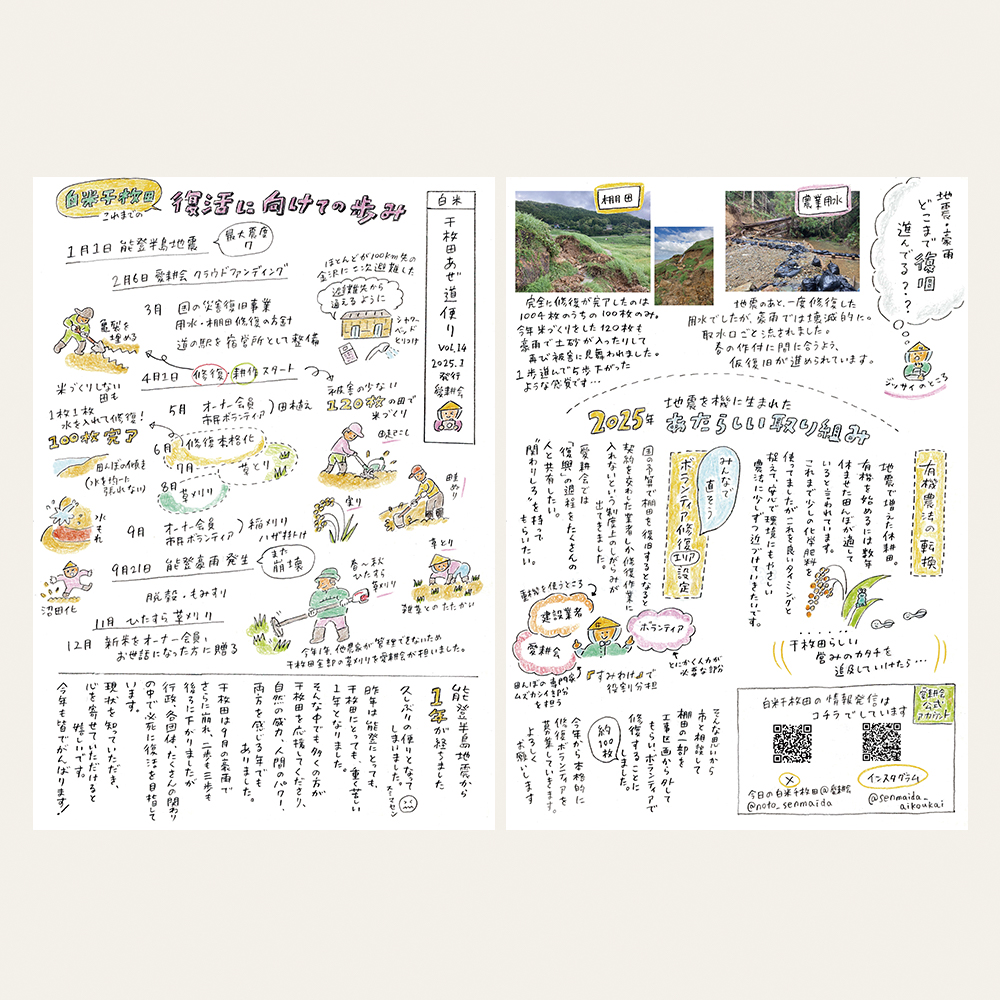 白米千枚田
これまでの
復活に向けての歩み
1月1日 能登半島地震
最大震度
7
2月6日 愛耕会 クラウドファンディング
ほとんどが100km先の
金沢に二次避難した
避難先から
通えるように
シャワー
ベッド
とりつけ
3月 国の災害復旧事業
用水・棚田修復の方針
道の駅を宿舎所として整備
亀裂を
埋める
4月1日 修復 耕作スタート
米づくりしない
田も
1枚1枚
水を入れて修復!
100枚完了
被害の少ない
120枚の田で
米づくり
5月 オーナー会員
市民ボランティア
田植え
6月 修復本格化
7月 草とり
8月 草刈り
田んぼの傾き
(水を均一に
張れない)
田起こし
畦ぬり
水もれ
実り
9月 オーナー会員
市民ボランティア
稲刈り
ハザ掛け
9月21日 能登豪雨 発生
また
崩壊
沼田化
脱穀・もみすり
11月 ひたすら草刈り
12月 新米をオーナー会員、
お世話になった方に贈る
春〜秋
ひたすら
草刈り
草とり
雑草とのたたかい
今年1年、他農家が管理できないため
千枚田全部の草刈りを愛耕会が担いました。
白米
千枚田あぜ道便り
vol.14
2025.1
発行
愛耕会
能登半島地震から
1年が経ちました
久しぶりの便りとなって
しまいました。
スーマセン
昨年は能登にとっても、
千枚田にとっても、重く苦しい
1年となりました。
そんな中でも多くの方が
千枚田を応援してくださり、
自然の威力、人間のパワー、
両方を感じる年でも
ありました。
千枚田は9月の豪雨で
さらに崩れ、二歩も三歩も
後ろに下がりましたが
行政、各団体、たくさんの関わり
の中で必死に復活を目指して
います。
現状を知っていただき、
心を寄せていただけると
嬉しいです。
今年も皆でがんばります!
棚田
農業用水
地震・豪雨
どこまで復旧
進んでる??
ジッサイのところ
完全に修復が完了したのは
1004枚のうちの100枚のみ。
今年米づくりをした120枚も
豪雨で土砂が入ったりして
再び被害に見舞われました。
1歩進んで5歩下がった
ような感覚です…
地震のあと、一度修復した
用水でしたが、豪雨では壊滅的に。
取水口ごと流されました。
春の作付に間に合うよう、
仮復旧が進められています。
地震を機に生まれた
2025年 あたらしい取り組み
有機農法の転換
地震で増えた休耕田。
有機を始めるには数年
休ませた田んぼが適して
いると言われています。
これまで少しの化学肥料を
使ってましたが、これを良いタイミングと
捉えて、安心で環境にもやさしい
農法に少しずつ近づけていきたいです。
千枚田らしい
営みのカタチを
追及していけたら…
みんなで
直そう
ボランティア修復エリア設定
国の予算で棚田を復旧するとなると
契約を交わした業者しか修復作業に
入れないという制度上のしがらみが
出てきました。
愛耕会では
「復興」の過程をたくさんの
人と共有したい。
"関わりしろ"を持って
もらいたい。
重機を使うところ
建設業者
愛耕会
ボランティア
田んぼの専門家
ムズカシイ部分
を担う
とにかく人力が
必要な部分
『すみわけ』で
役割分担
そんな思いから
市と相談して
棚田の一部を
工事区画から外して
もらい、ボランティアで
修復することに
しました。
約100枚
今年から本格的に
修復ボランティアを
募集していきます。
よろしく
お願いします
白米千枚田の情報発信は
コチラでしています
愛耕会
公式
アカウント
X
今日の白米千枚田@愛耕会
@noto_senmaida
インスタグラム
@senmaida_
aikoukai